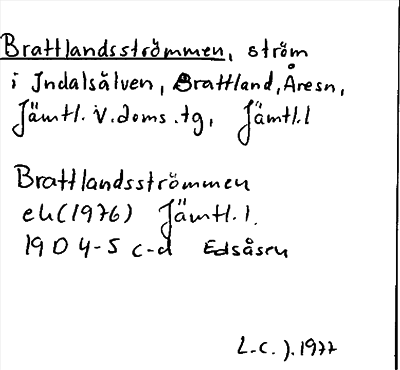 Brattlandsströmmen, ström
i Indalsälven, Brattland, Åresn,
Jämtl. v. doms. tg, Jämtl. l
Brattlandsströmmen
ek (1976) Jämtl. l.
19 D 4-5 c-d Edsåsen
L-C. J. 1977